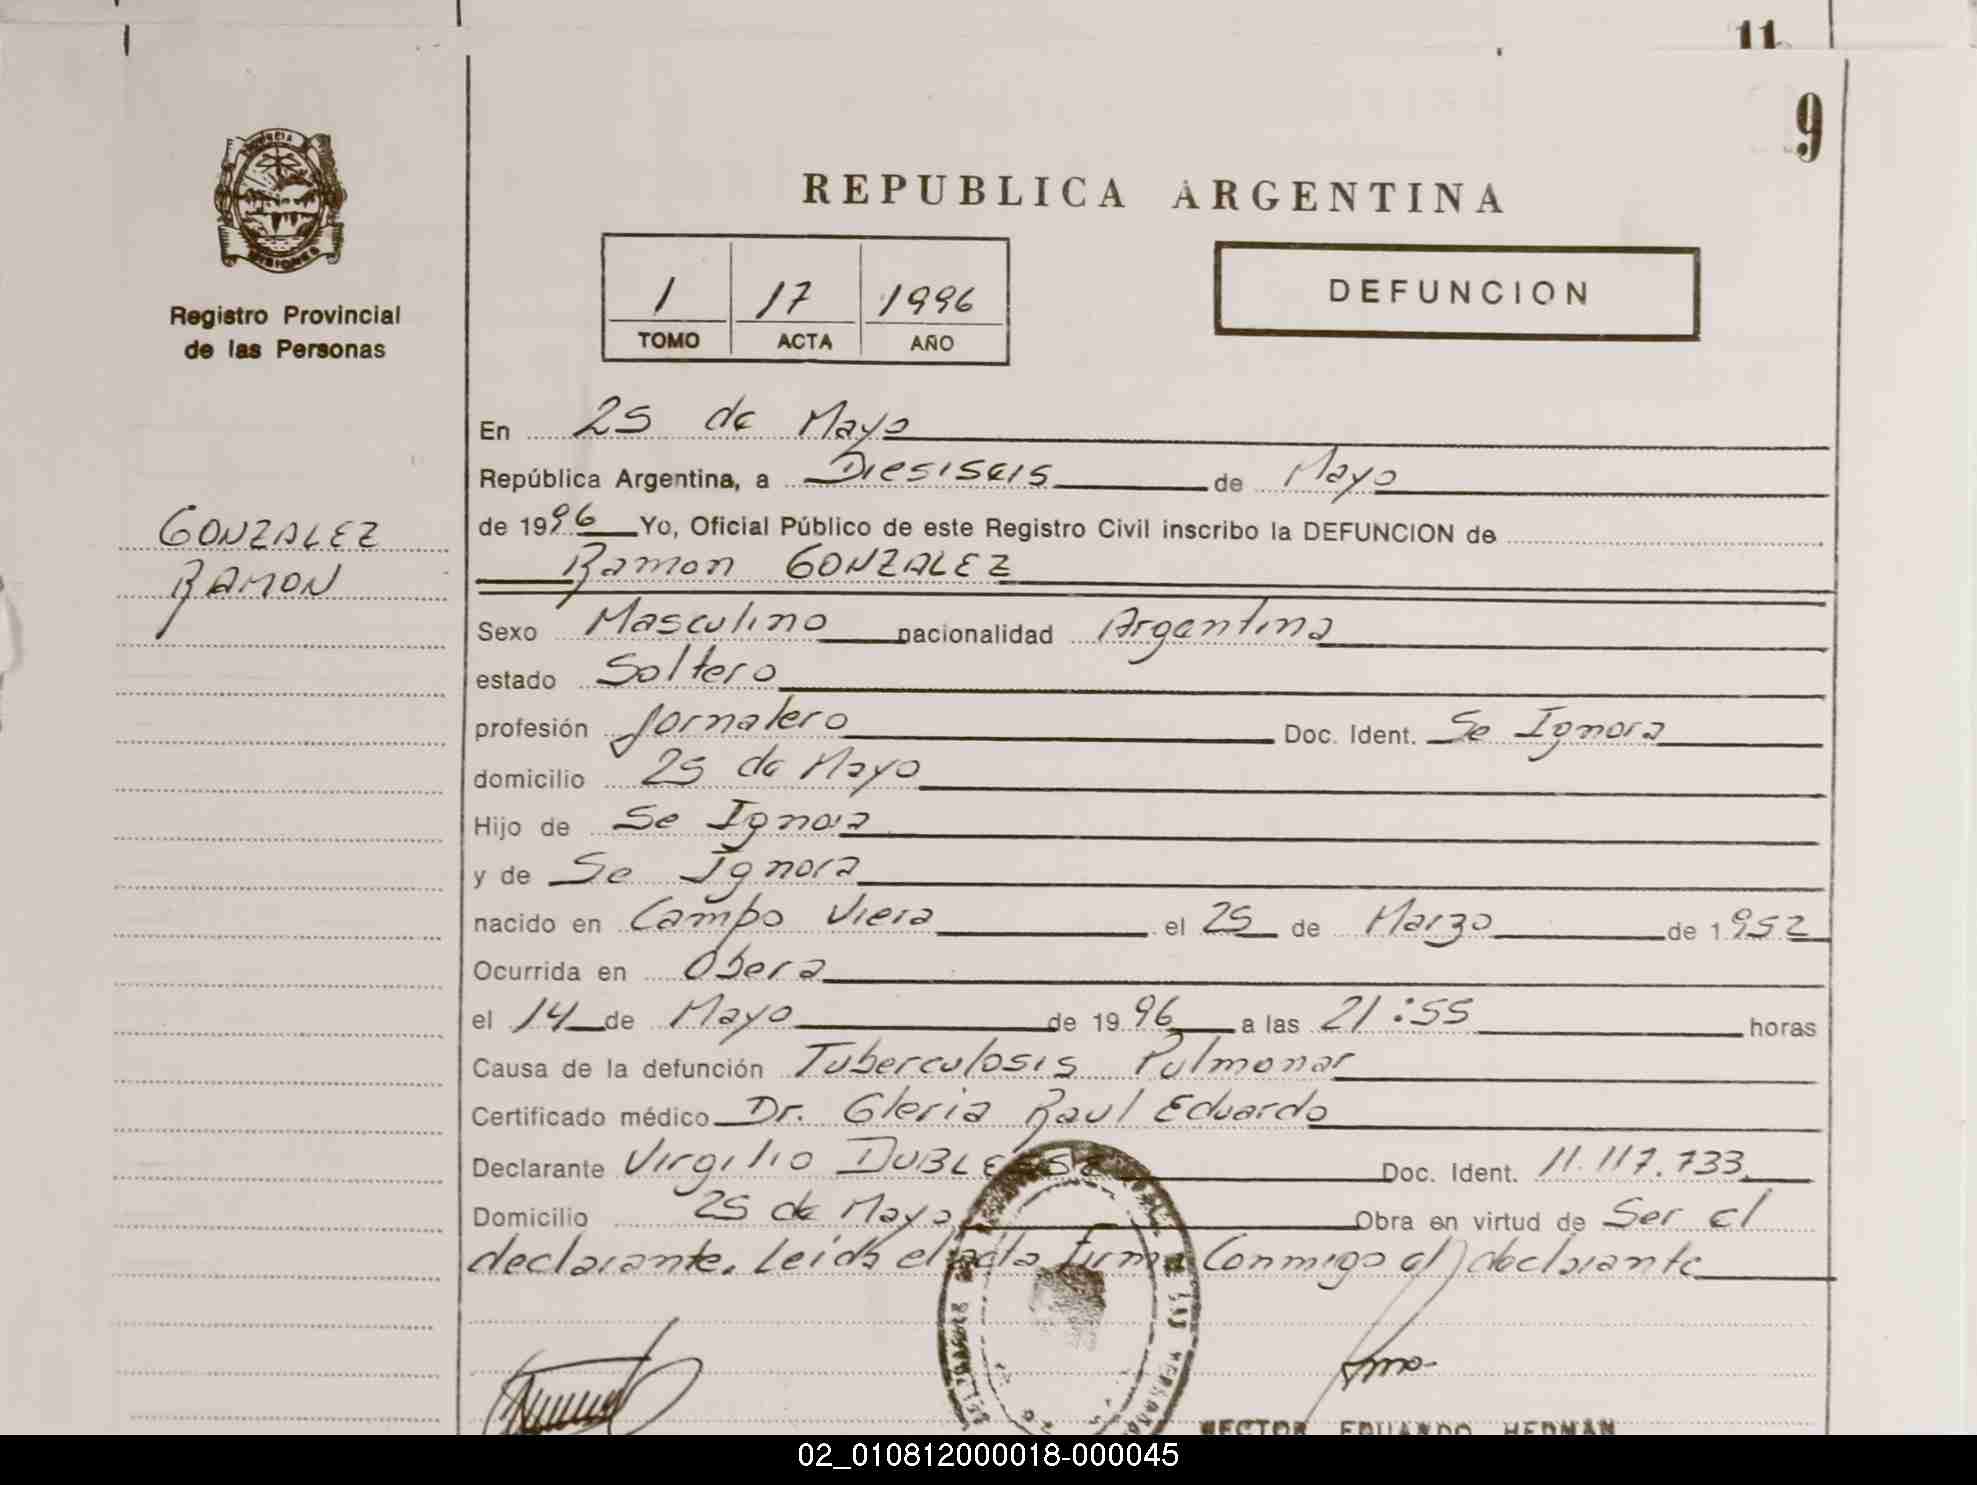 11
9
REPUBLICA ARGENTINA
MISIONES
Registro Provincial
de las Personas
1 17 1996
TOMO ACTA AÑO
DEFUNCION
GONZALEZ
RAMON
En 25 de Mayo
República Argentina, a Diesiseis de Mayo
de 1996 Yo, Oficial Público de este Registro Civil inscribo la DEFUNCION de
Ramon GONZALEZ
Sexo Masculino nacionalidad Argentina
estado Soltero
profesión Jornalero Doc. Ident. Se Ignora
domicilio 25 de Mayo
Hijo de Se Ignora
y de Se Ignora
nacido en Campo Viera el 25 de Marzo de 1952
Ocurrida en Obera
el 14 de Mayo de 1996 a las 21:55 horas
Causa de la defunción Tuberculosis Pulmonar
Certificado médico Dr. Gleria Raul Eduardo
Declarante Virgilio Doc. Ident. 11.117.733.
Domicilio 25 de Mayo Obra en virtud de Ser el
declarante. Leida el acta firma Conmigo el declarante
HECTOR EDUARDO HERNAN
02_010812000018-000045